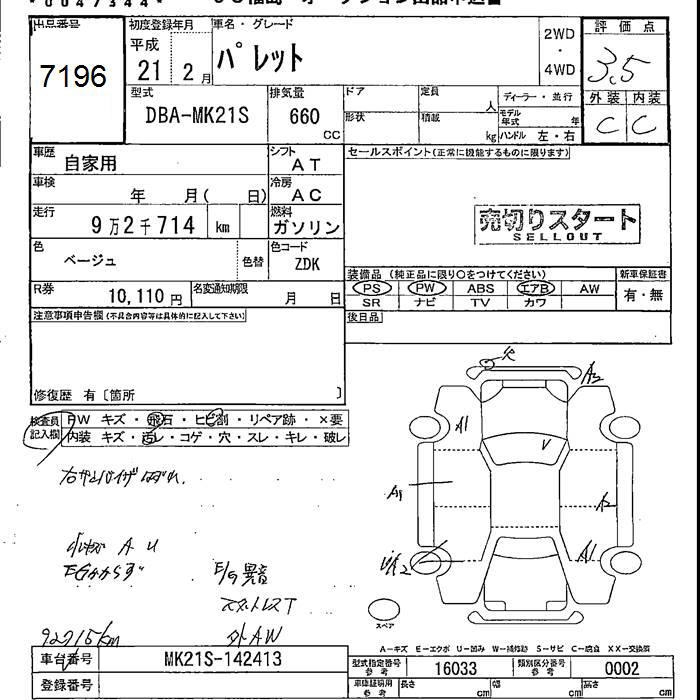 *0047344*
出品番号
7196
初度登録年月
平成
21 2月
車名・グレード
パレット
2WD
・
4WD
評価点
3.5
外装 内装
C C
型式
DBA-MK21S
排気量
660
CC
ドア
定員
人
ディーラー・並行
形状
積載
kg
モデル年式
年
ハンドル 左・右
車歴
自家用
シフト
AT
セールスポイント(正常に機能するものに限ります)
車検
年 月( 日)
冷房
AC
走行
9万2千714 km
燃料
ガソリン
売切りスタート
SELLOUT
色
ベージュ
色替
色コード
ZDK
R券
10,110円
名変通知期限
月 日
装備品 (純正品に限り○をつけてください)
新車保証書
PS PW ABS エアB AW
有・無
SR ナビ TV カワ
注意事項申告欄(不具合内容等は具体的に記入して下さい)
後日品
修復歴 有〔箇所 〕
検査員記入欄
FW キズ・飛石・ヒビ割・リペア跡・×要
内装 キズ・汚レ・コゲ・穴・スレ・キレ・破レ
右サンバイザはずれ
A U
EGかからず
E/G異音
スタットレスT
外AW
92715km
欠
A2
A1
V
A1
A2
A1
スペア
A-キズ E-エクボ U-凹み W-補修跡 S-サビ C-腐食 XX-交換済
車台番号
MK21S-142413
型式指定番号
参考
16033
類別区分番号
参考
0002
登録番号
車庫証明用
参考
長さ cm
幅 cm
高さ cm